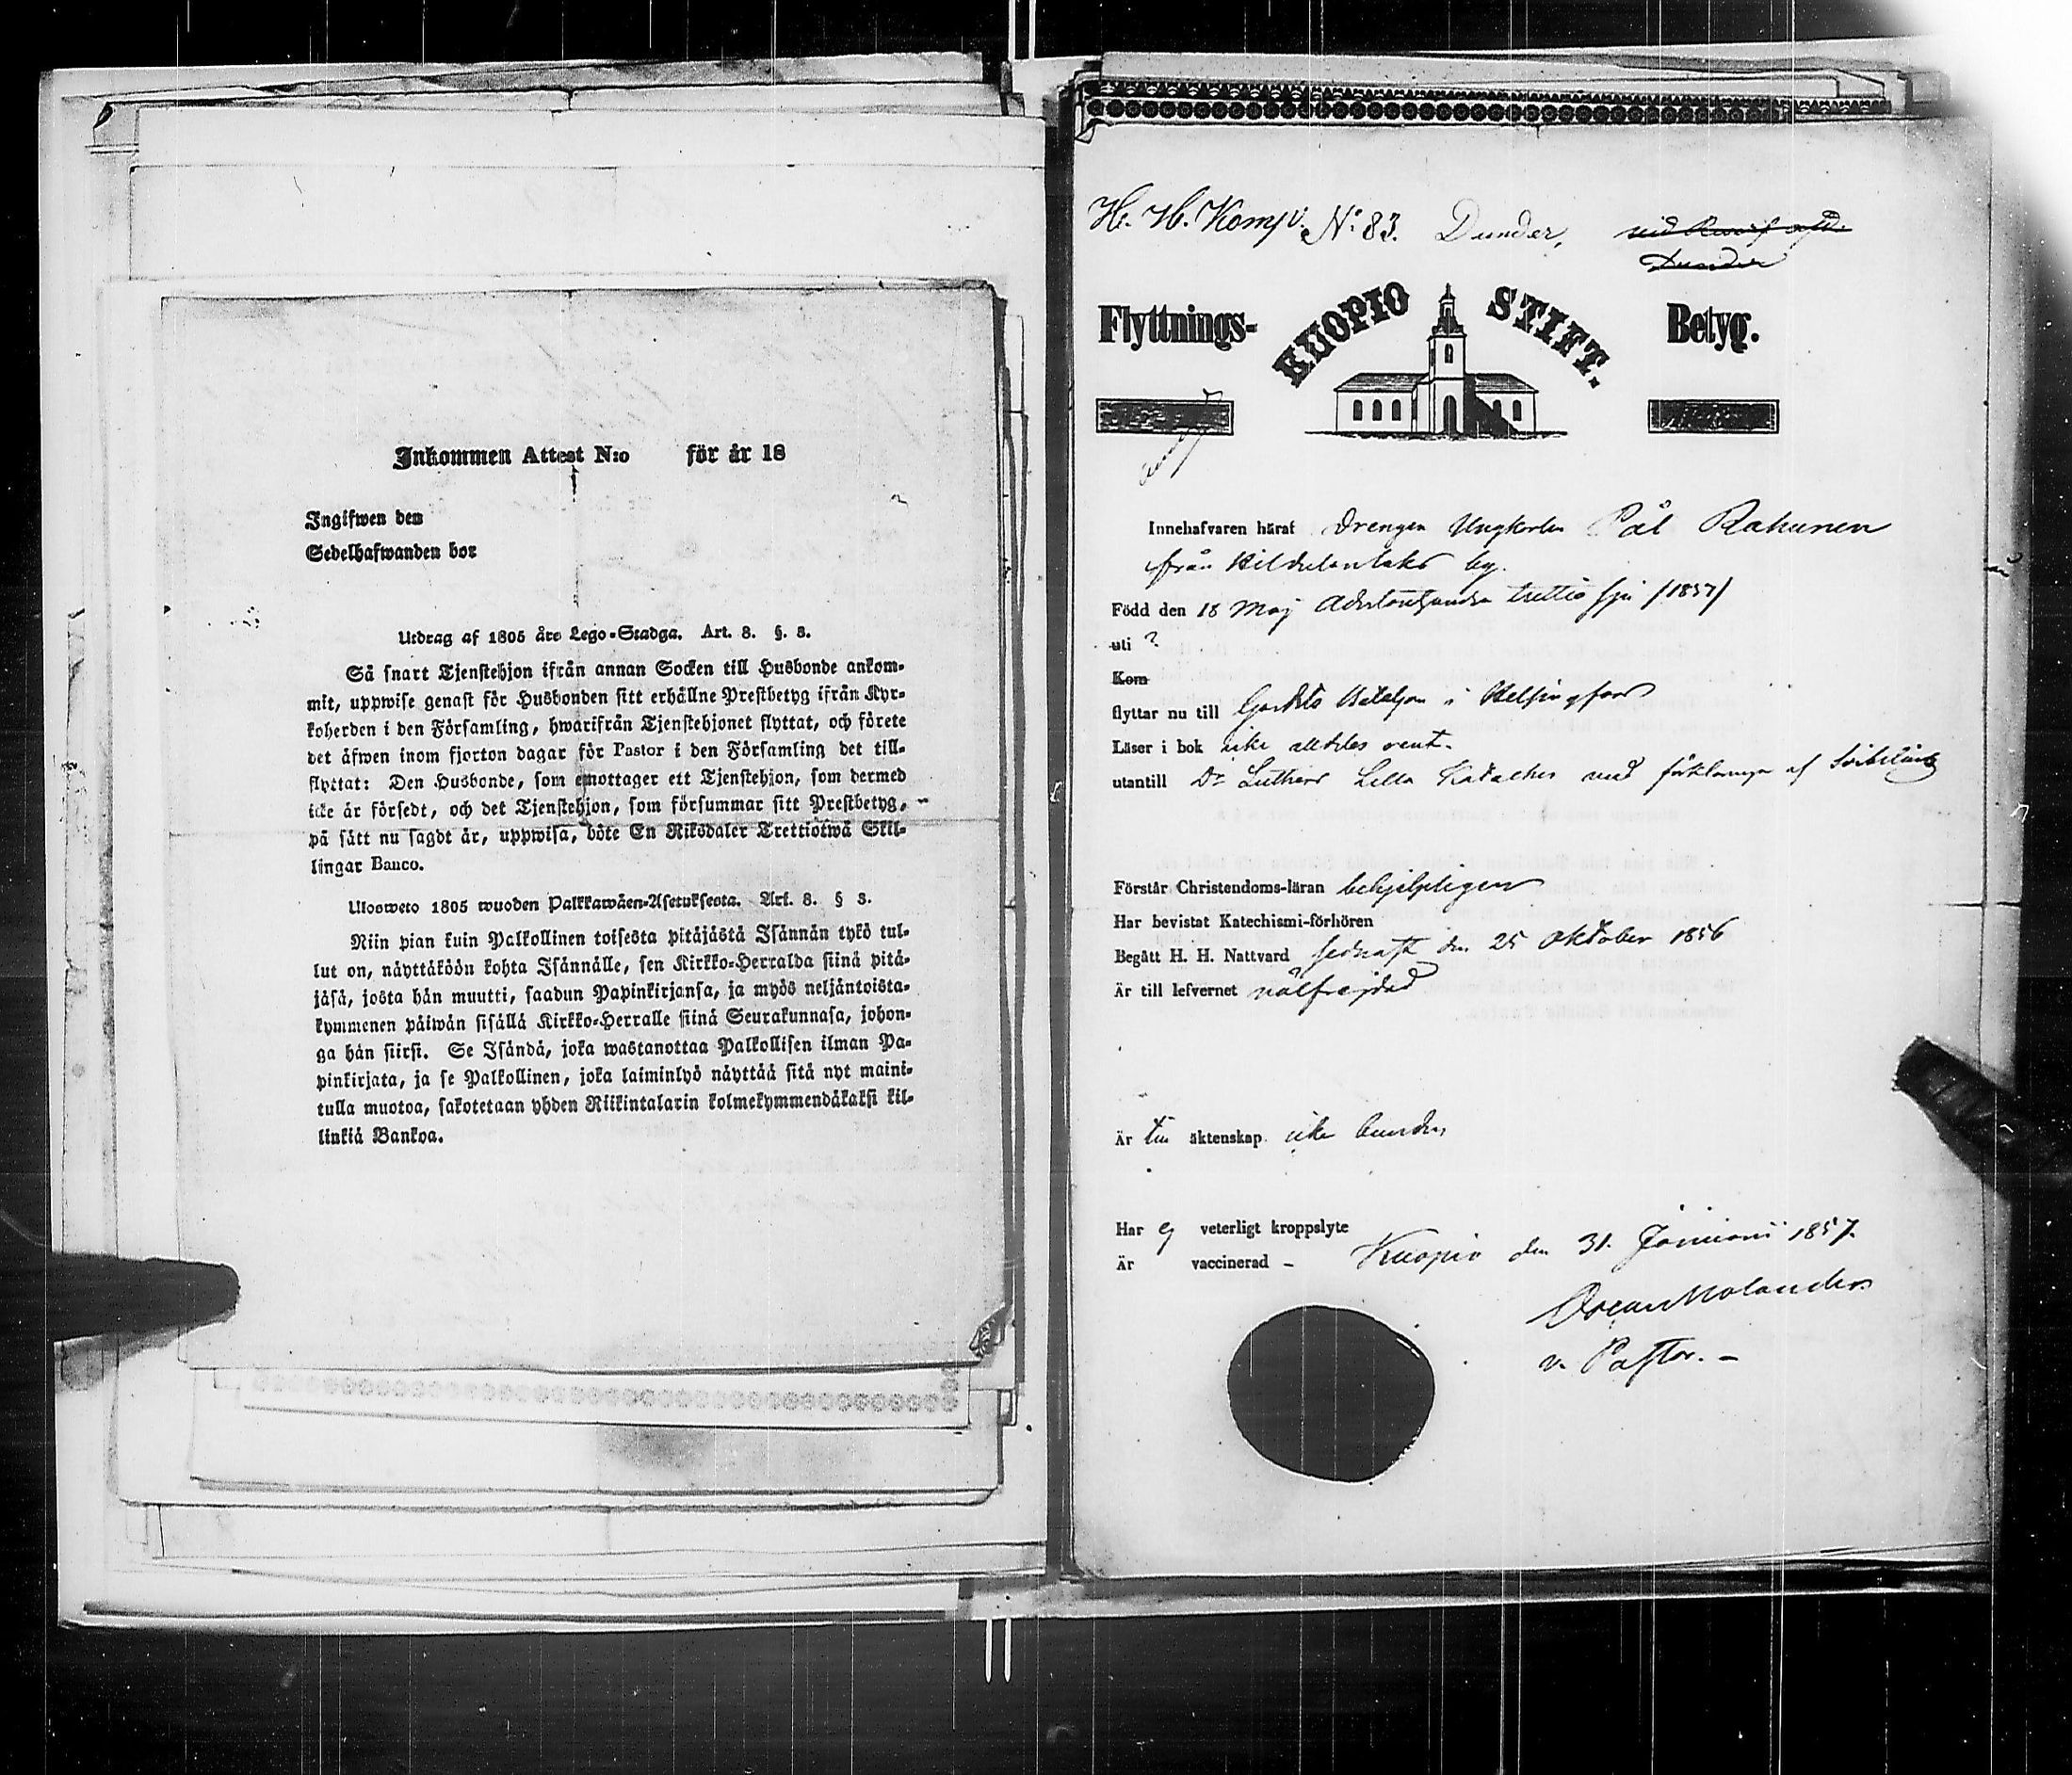 Inkommen Attest N:o för år 18
Ingifwen den
Sedelhafwanden bor
Utdrag af 1805 års Lego-Stadga. Art. 8. §. 3.
Så snart Tjenstehjon ifrån annan Socken till Husbonde ankom-
mit, uppwise genast för Husbonden sitt erhållne Prestbetyg ifrån Kyr-
koherden i den Församling, hwarifrån Tjenstehjonet flyttat, och förete
det äfwen inom fjorton dagar för Pastor i den Församling det till-
flyttat: Den Husbonde, som emottager ett Tjenstehjon, som dermed
icke är försedt, och det Tjenstehjon, som försummar sitt Prestbetyg,
på sätt nu sagdt är, uppwisa, böte En Riksdaler Trettiotwå Skil-
lingar Banco.
Ulosweto 1805 wuoden Palkkawäen-Asetuksesta. Art. 8. § 3.
Niin pian kuin Palkollinen toisesta pitäjästä Isännän tykö tul-
lut on, näyttäköön kohta Isännälle, sen Kirkko-Herralda siinä pitä-
jäsä, josta hän muutti, saadun Papinkirjansa, ja myös neljäntoista-
kymmenen päiwän sisällä Kirkko-Herralle siinä Seurakunnasa, johon-
ga hän siirsi. Se Isändä, joka wastanottaa Palkollisen ilman Pa-
pinkirjata, ja se Palkollinen, joka laiminlyö näyttää sitä nyt maini-
tulla muotoa, sakotetaan yhden Riikintalarin kolmekymmendäkaksi kil-
linkiä Bankoa.
H. H. Komp. No: 83. Dunder,
Dunder
Flyttnings- KUOPIO STIFT. Betyg.
Innehafvaren häraf Drengen Ungkarlen Pål Rahunen
från by.
Född den 18 Maj Adertonhundra trettio sju /1837/
uti ?
Kom
flyttar nu till Gardets Bataljon i Helsingfors
Läser i bok icke alldeles rent.
utantill Dr Luthers Lilla Kateches med förklaringen af Svebelius
Förstår Christendoms-läran behjelpligen
Har bevistat Katechismi-förhören
Begått H. H. Nattvard sednast den 25 Oktober 1856
Är till lefvernet välfrejdad
Är till äktenskap icke bunden
Har ej veterligt kroppslyte
Är vaccinerad – Kuopio den 31. Januarii 1857.
Oscar Molander
v. Pastor. –